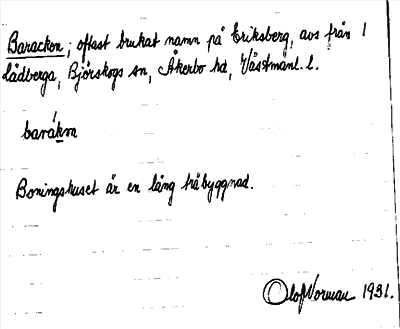 Baracken; oftast brukat namn på Eriksberg, avs från 1
Lådberga, Björskogs sn, Åkerbo hd, Västmanl. l.
barákn
Boningshuset är en lång träbyggnad.
Olof Norman 1931.